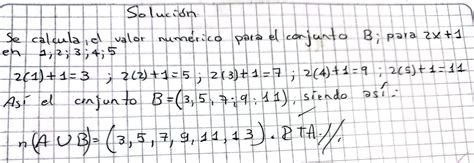 Solución
Se calcula el valor numérico para el conjunto B; para 2x+1
en 1,2;3;4;5
2(1)+1=3 ; 2(2)+1=5 ; 2(3)+1=7 ; 2(4)+1=9 ; 2(5)+1=11
Así el conjunto B=(3,5,7;9;11), siendo así:
n(A∪B)=(3,5,7,9,11,13). RTA.//